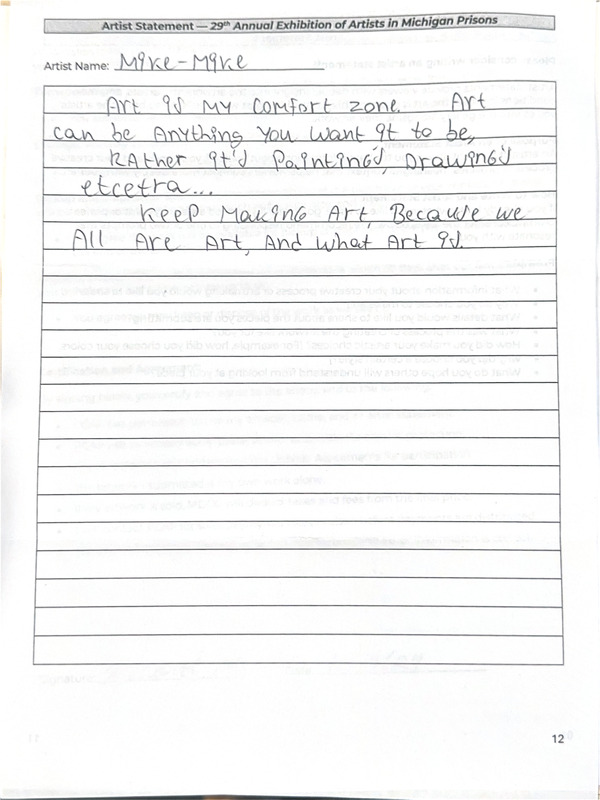 Artist Statement — 29th Annual Exhibition of Artists in Michigan Prisons
Artist Name: Mike-Mike
Art is My Comfort zone. Art
can be Anything You Want it to be,
RAther it's Painting's, Drawing's
etcetra...
Keep Making Art, Because we
All Are Art, And What Art is.
12